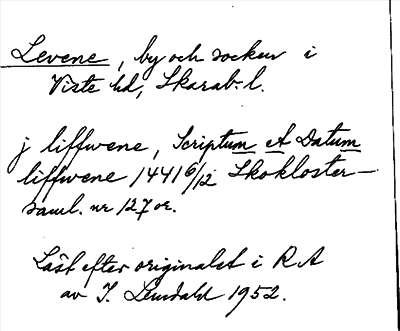 Levene, by och socken i
Viste hd, Skarab. l.
j liffwene, Scriptum et Datum
liffwene 1441 6/12 Skokloster-
saml. nr 127 or.
Läst efter originalet i RA
av I. Lindahl 1952.